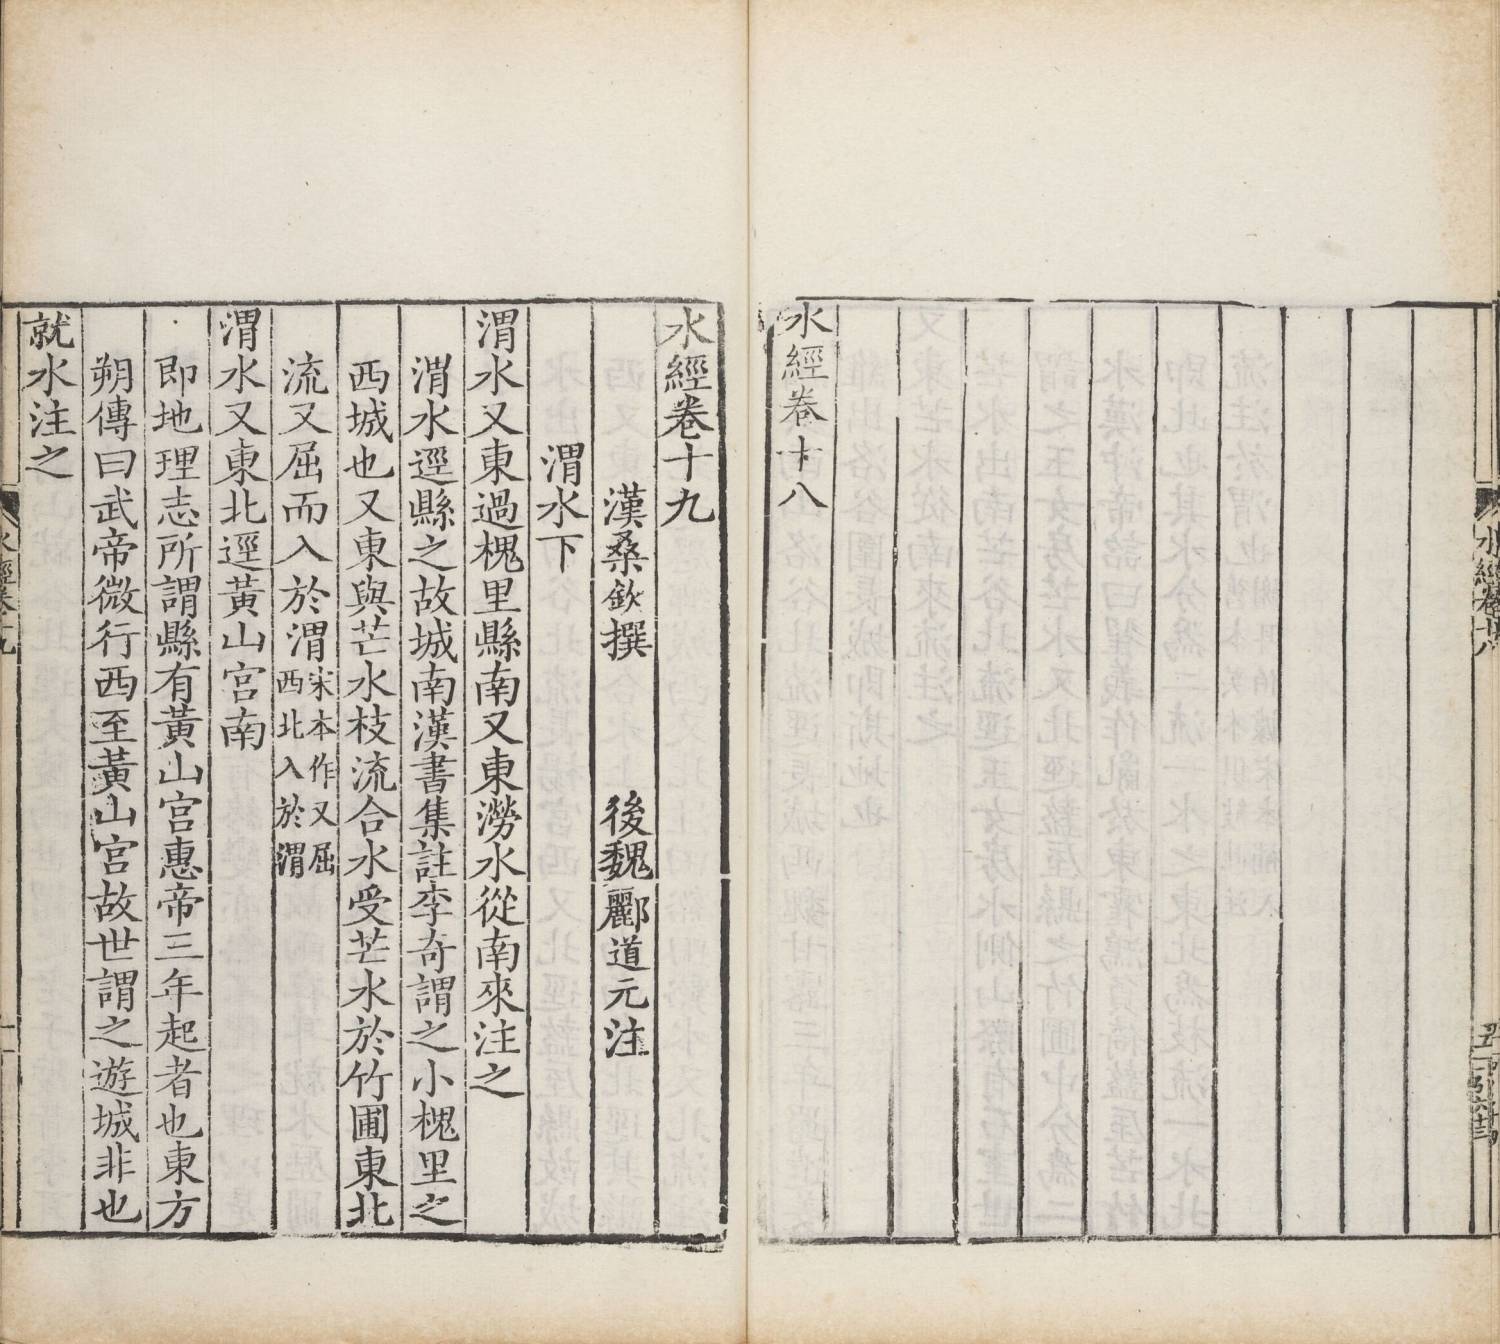 水經卷十八
水經卷十九
漢桑欽撰　後魏酈道元注
渭水下
渭水又東過槐里縣南又東澇水從南來注之
渭水逕縣之故城南漢書集註李奇謂之小槐里之
西城也又東與芒水枝流合水受芒水於竹圃東北
流又屈而入於渭宋本作又屈西北入於渭
渭水又東北逕黃山宮南
即地理志所謂縣有黃山宮惠帝三年起者也東方
朔傳曰武帝微行西至黃山宮故世謂之遊城非也
就水注之
水經卷十九